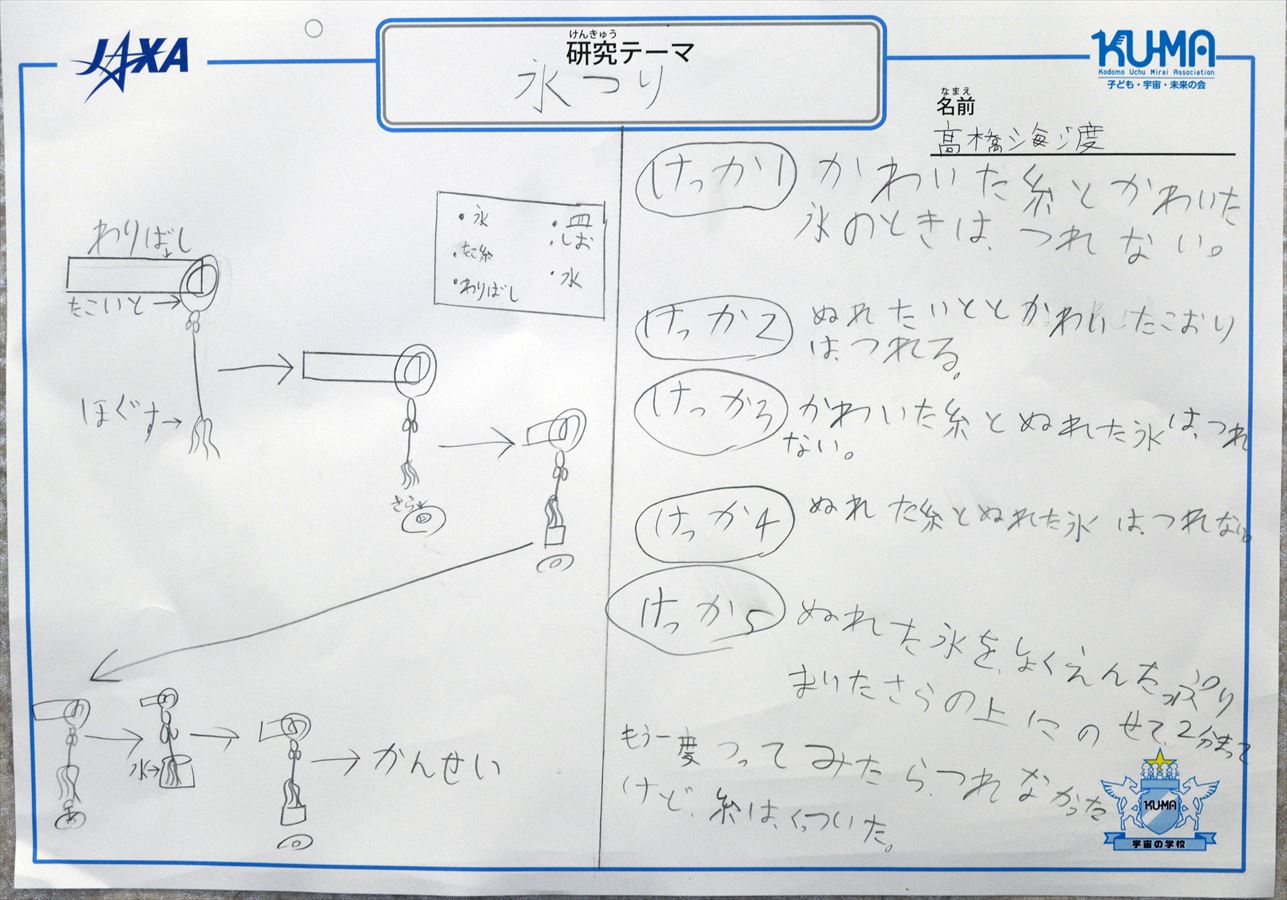 JAXA
けんきゅう
研究テーマ
氷つり
KU-MA
Kodomo Uchu Mirai Association
子ども・宇宙・未来の会
なまえ
名前
高橋海渡
わりばし
たこいと→
ほぐす→
・氷
・たこ糸
・わりばし
・皿
・しお
・水
さら
水→
かんせい
けっか1
かわいた糸とかわいた
氷のときは、つれない。
けっか2
ぬれたいととかわいたこおり
は、つれる。
けっか3
かわいた糸とぬれた氷は、つれ
ない。
けっか4
ぬれた糸とぬれた氷は、つれない。
けっか5
ぬれた氷を、しょくえんたっぷり
まいたさらの上にのせて、2分まって
もう一度つってみたら、つれなかった
けど、糸は、くっついた。
KU-MA
宇宙の学校